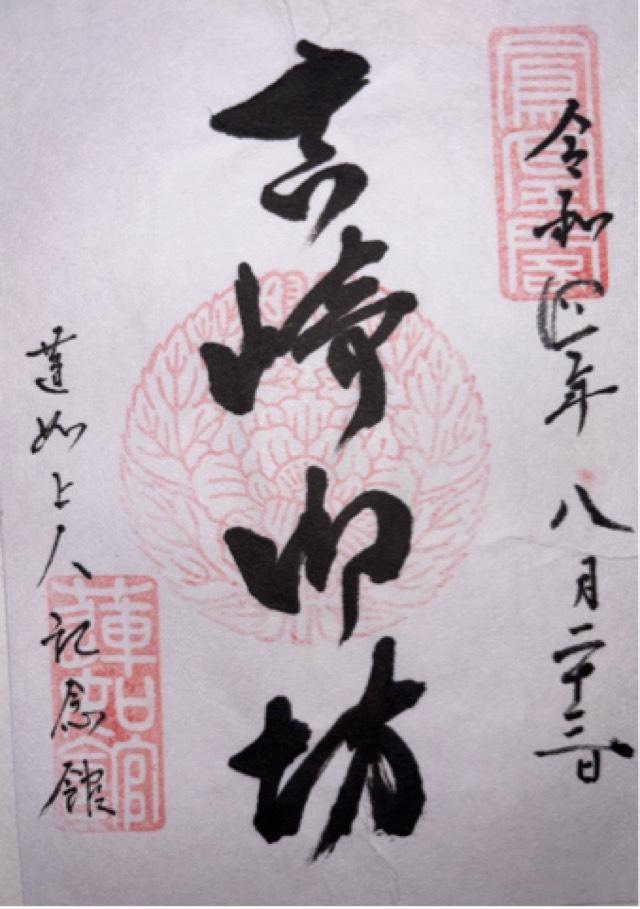 令和四年八月二十三日
吉崎御坊
蓮如上人記念館
鳳凰閣
蓮如館